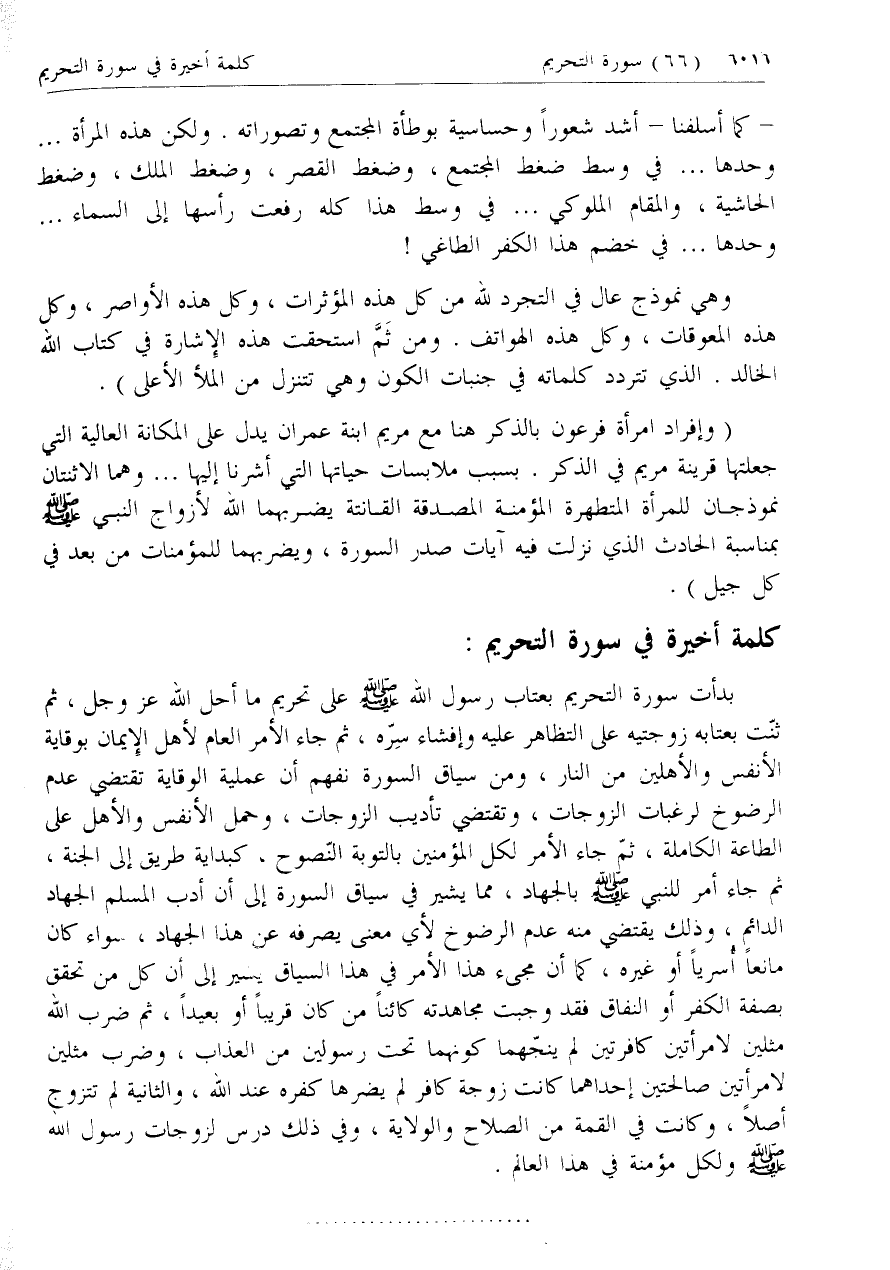 ٦٠١٦ (٦٦) سورة التحريم كلمة أخيرة في سورة التحريم
– كما أسلفنا – أشد شعوراً وحساسية بوطأة المجتمع وتصوراته . ولكن هذه المرأة ...
وحدها ... في وسط ضغط المجتمع ، وضغط القصر ، وضغط الملك ، وضغط
الحاشية ، والمقام الملوكي ... في وسط هذا كله رفعت رأسها إلى السماء ...
وحدها ... في خضم هذا الكفر الطاغي !
وهي نموذج عال في التجرد لله من كل هذه المؤثرات ، وكل هذه الأواصر ، وكل
هذه المعوقات ، وكل هذه الهواتف . ومن ثَمَّ استحقت هذه الإشارة في كتاب الله
الخالد . الذي تتردد كلماته في جنبات الكون وهي تتنزل من الملأ الأعلى ) .
( وإفراد امرأة فرعون بالذكر هنا مع مريم ابنة عمران يدل على المكانة العالية التي
جعلتها قرينة مريم في الذكر . بسبب ملابسات حياتها التي أشرنا إليها ... وهما الاثنتان
نموذجان للمرأة المتطهرة المؤمنة المصدقة القانتة يضربهما الله لأزواج النبي ﷺ
بمناسبة الحادث الذي نزلت فيه آيات صدر السورة ، ويضربهما للمؤمنات من بعد في
كل جيل ) .
كلمة أخيرة في سورة التحريم :
بدأت سورة التحريم بعتاب رسول الله ﷺ على تحريم ما أحل الله عز وجل ، ثم
ثنّت بعتابه زوجتيه على التظاهر عليه وإفشاء سِرّه ، ثم جاء الأمر العام لأهل الإيمان بوقاية
الأنفس والأهلين من النار ، ومن سياق السورة نفهم أن عملية الوقاية تقتضي عدم
الرضوخ لرغبات الزوجات ، وتقتضي تأديب الزوجات ، وحمل الأنفس والأهل على
الطاعة الكاملة ، ثمّ جاء الأمر لكل المؤمنين بالتوبة النّصوح . كبداية طريق إلى الجنة ،
ثم جاء أمر للنبي ﷺ بالجهاد ، مما يشير في سياق السورة إلى أن أدب المسلم الجهاد
الدائم ، وذلك يقتضي منه عدم الرضوخ لأي معنى يصرفه عن هذا الجهاد ، سواء كان
مانعاً أسرياً أو غيره ، كما أن مجيء هذا الأمر في هذا السياق يسير إلى أن كل من تحقق
بصفة الكفر أو النفاق فقد وجبت مجاهدته كائناً من كان قريباً أو بعيداً ، ثم ضرب الله
مثلين لامرأتين كافرتين لم ينجّهما كونهما تحت رسولين من العذاب ، وضرب مثلين
لامرأتين صالحتين إحداهما كانت زوجة كافر لم يضرها كفره عند الله ، والثانية لم تتزوج
أصلاً ، وكانت في القمة من الصلاح والولاية ، وفي ذلك درس لزوجات رسول الله
ﷺ ولكل مؤمنة في هذا العالم .
........................